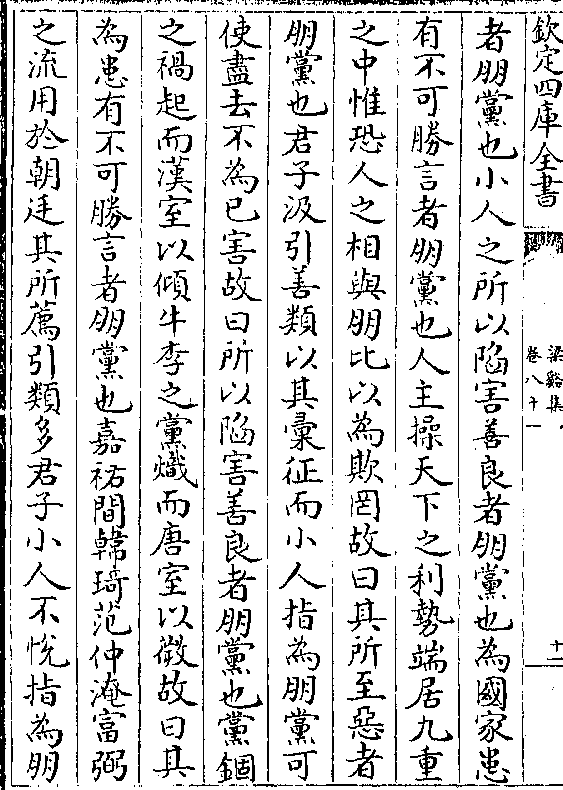 欽定四庫全書
梁谿集
卷八十一
十二
者朋黨也小人之所以陷害善良者朋黨也為國家患
有不可勝言者朋黨也人主操天下之利勢端居九重
之中惟恐人之相與朋比以為欺罔故曰其所至惡者
朋黨也君子汲引善類以其彙征而小人指為朋黨可
使盡去不為已害故曰所以陷害善良者朋黨也黨錮
之禍起而漢室以傾牛李之黨熾而唐室以微故曰其
為患有不可勝言者朋黨也嘉祐間韓琦范仲淹富弼
之流用於朝廷其所薦引類多君子小人不悅指為朋